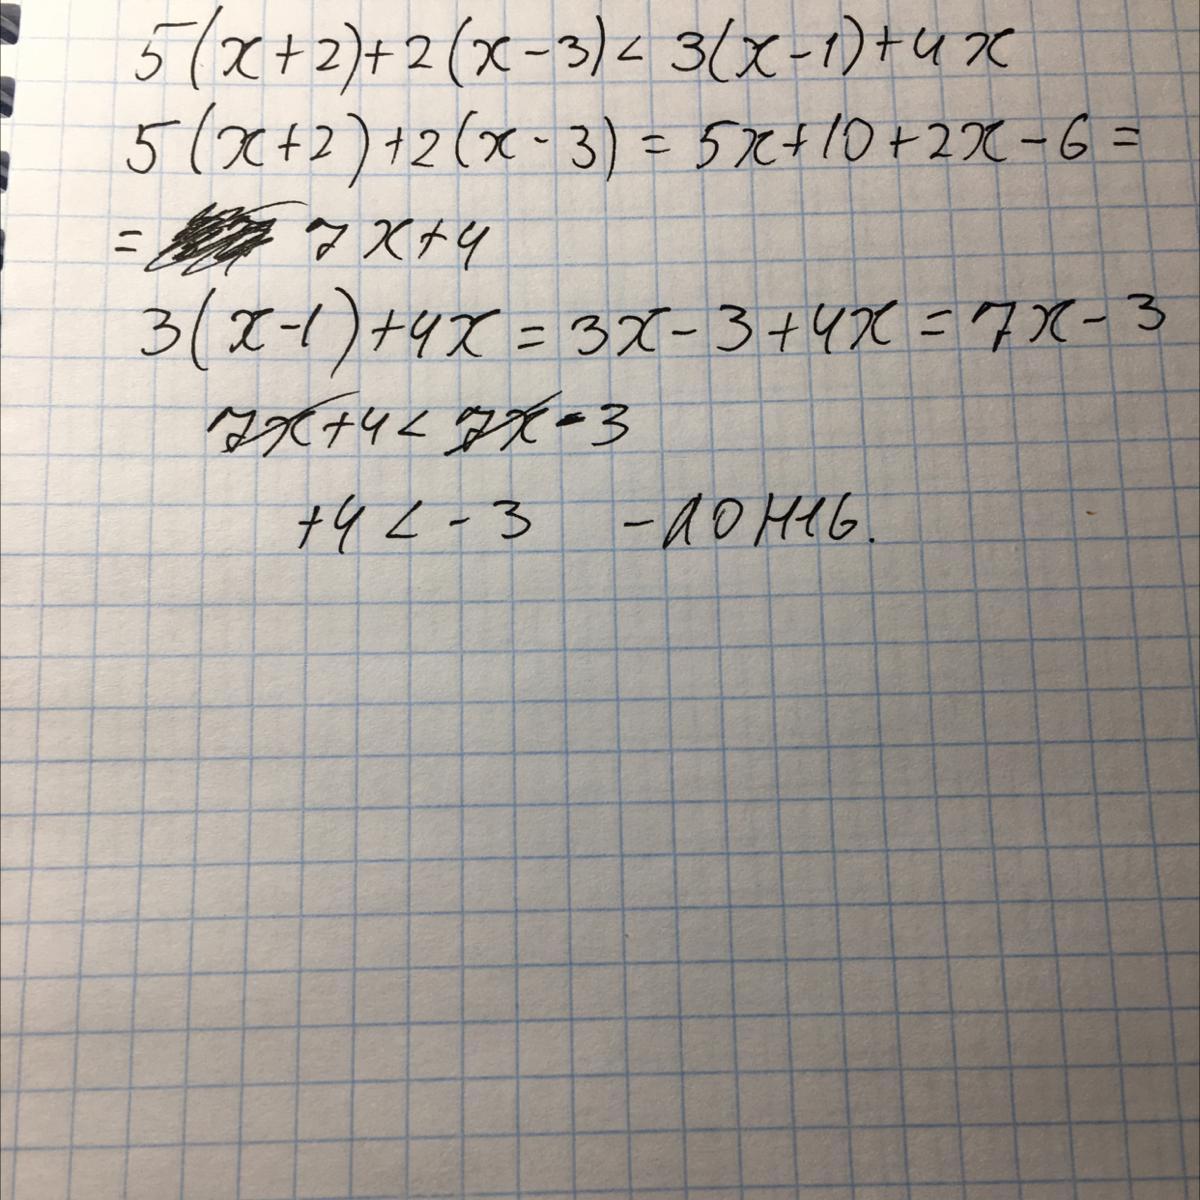 5(x+2)+2(x-3)< 3(x-1)+4x
5(x+2)+2(x-3)=5x+10+2x-6=
= 7x+4
3(x-1)+4x=3x-3+4x=7x-3
7x+4<7x-3
+4<-3